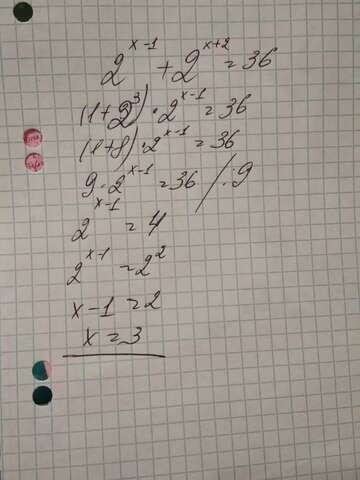 2^{x-1} + 2^{x+2} = 36
(1+2^3) · 2^{x-1} = 36
(1+8) · 2^{x-1} = 36
9 · 2^{x-1} = 36 / :9
2^{x-1} = 4
2^{x-1} = 2^2
x-1 = 2
x = 3